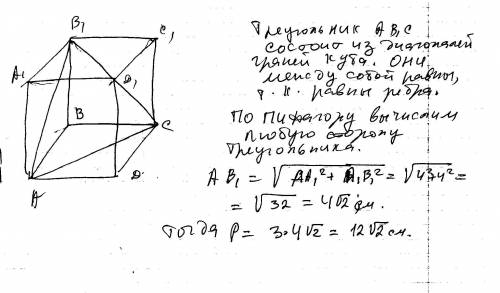 B₁
C₁
A₁
D₁
B
C
A
D
Треугольник AB₁C
состоит из диагоналей
граней куба. Они
между собой равны,
т.к. равны ребра.
По Пифагору вычислим
любую сторону
треугольника.
AB₁ = √AA₁² + A₁B₁² = √4²+4² =
= √32 = 4√2 см.
Тогда P = 3·4√2 = 12√2 см.